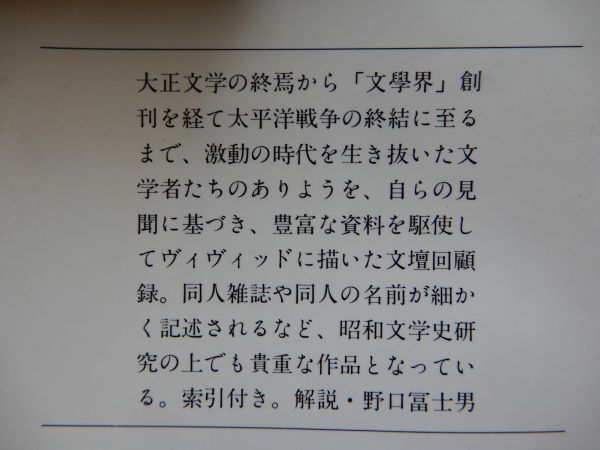 大正文学の終焉から「文學界」創
刊を経て太平洋戦争の終結に至る
まで、激動の時代を生き抜いた文
学者たちのありようを、自らの見
聞に基づき、豊富な資料を駆使し
てヴィヴィッドに描いた文壇回顧
録。同人雑誌や同人の名前が細か
く記述されるなど、昭和文学史研
究の上でも貴重な作品となってい
る。索引付き。解説・野口冨士男